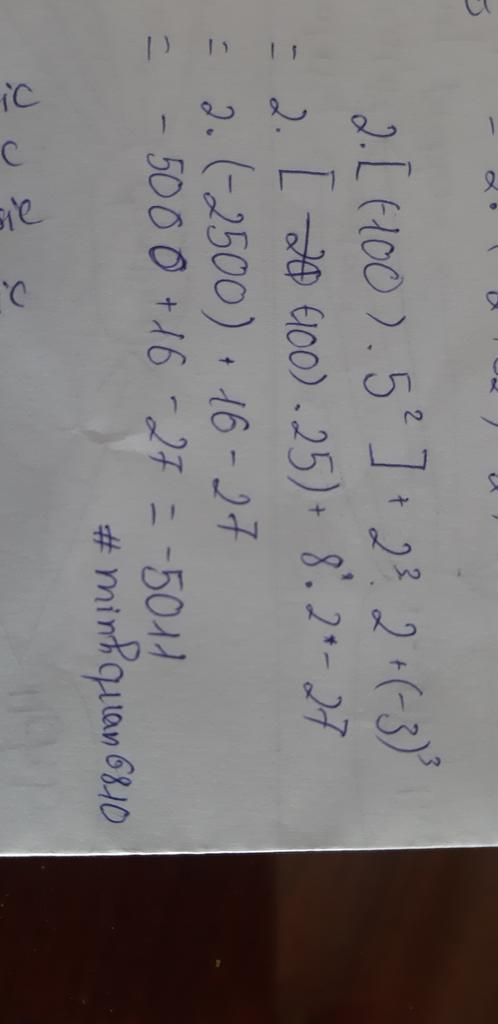 2.[(-100).5²]+2³.2+(-3)³
= 2.[(-100).25)+8.2-27
= 2.(-2500)+16-27
= -5000+16-27=-5011
#minhquan6810